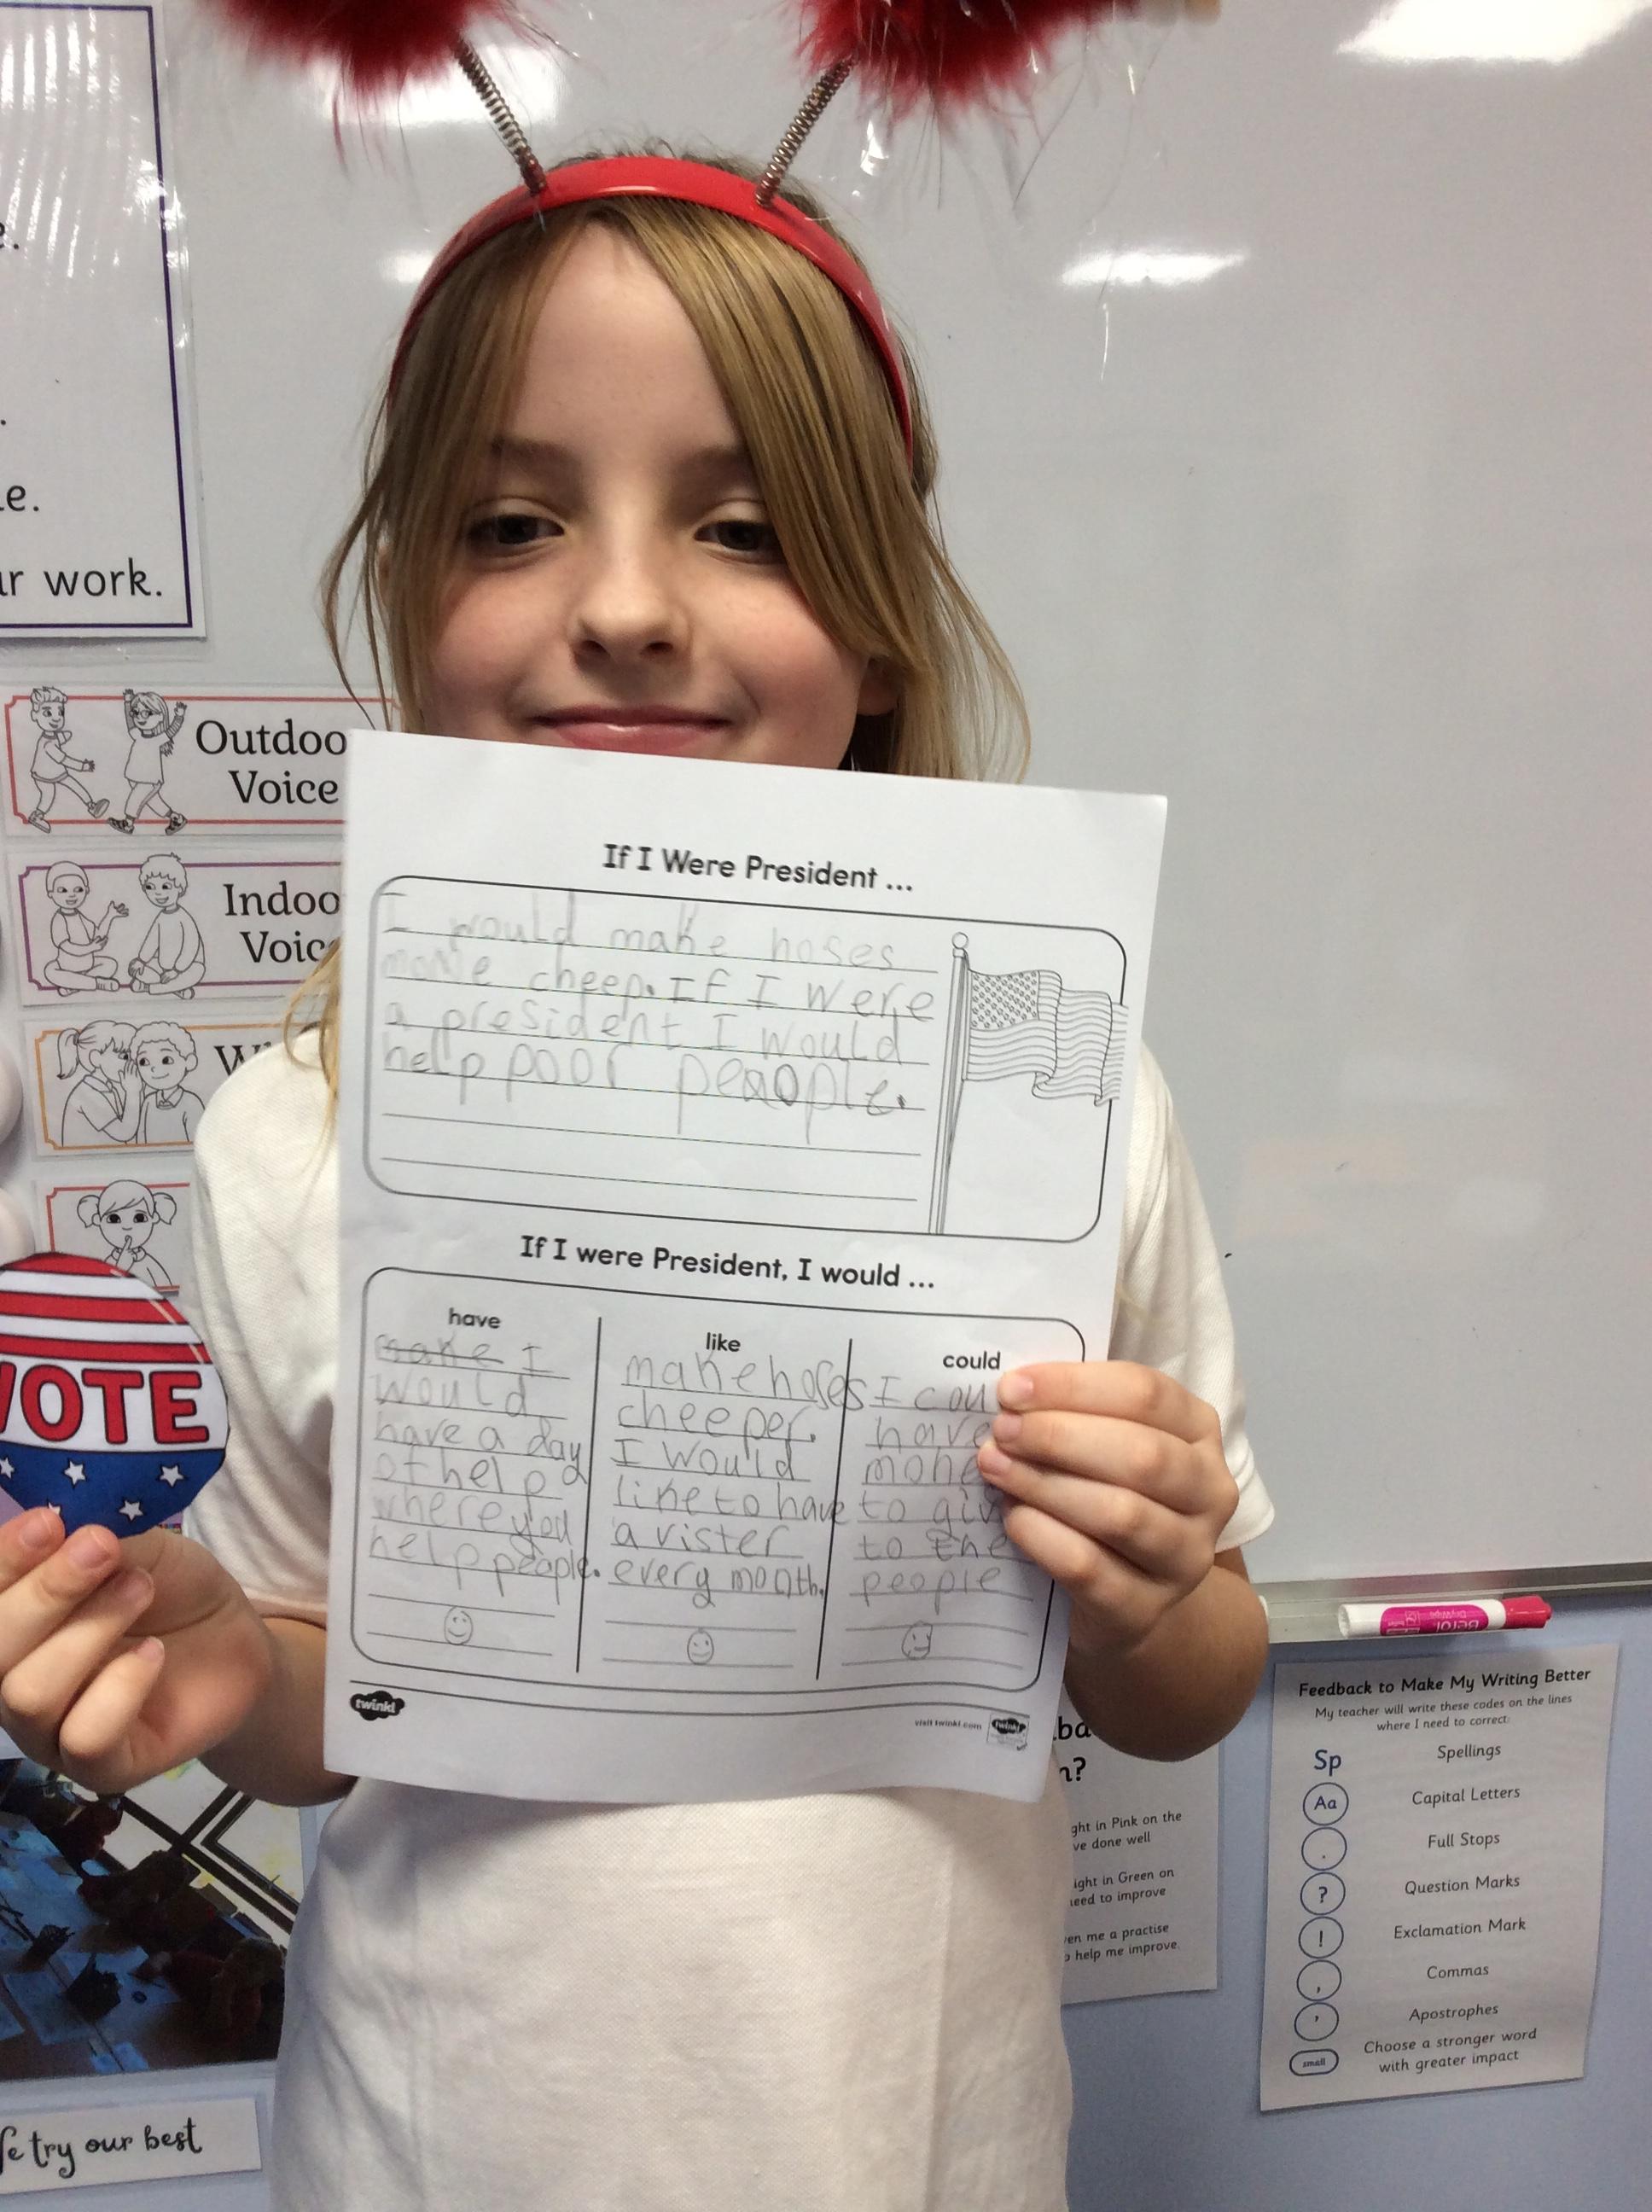 e.
.
le.
ur work.
Outdoo
Voice
Indoo
Voic
W
VOTE
If I Were President ...
I would make hoses
more cheep. If I were
a president I would
help poor peaople.
If I were President, I would ...
have
make I
would
have a day
of help
where you
help people.
like
make hoses
cheeper.
I would
like to have
a vister
every month.
could
I cou
have
mone
to giv
to the
people
twinkl
visit twinkl.com
twinkl
e try our best
n?
ght in Pink on the
ve done well
ight in Green on
need to improve
en me a practise
o help me improve.
Berol
Feedback to Make My Writing Better
My teacher will write these codes on the lines
where I need to correct:
Sp Spellings
Aa Capital Letters
. Full Stops
? Question Marks
! Exclamation Mark
, Commas
' Apostrophes
small Choose a stronger word
with greater impact